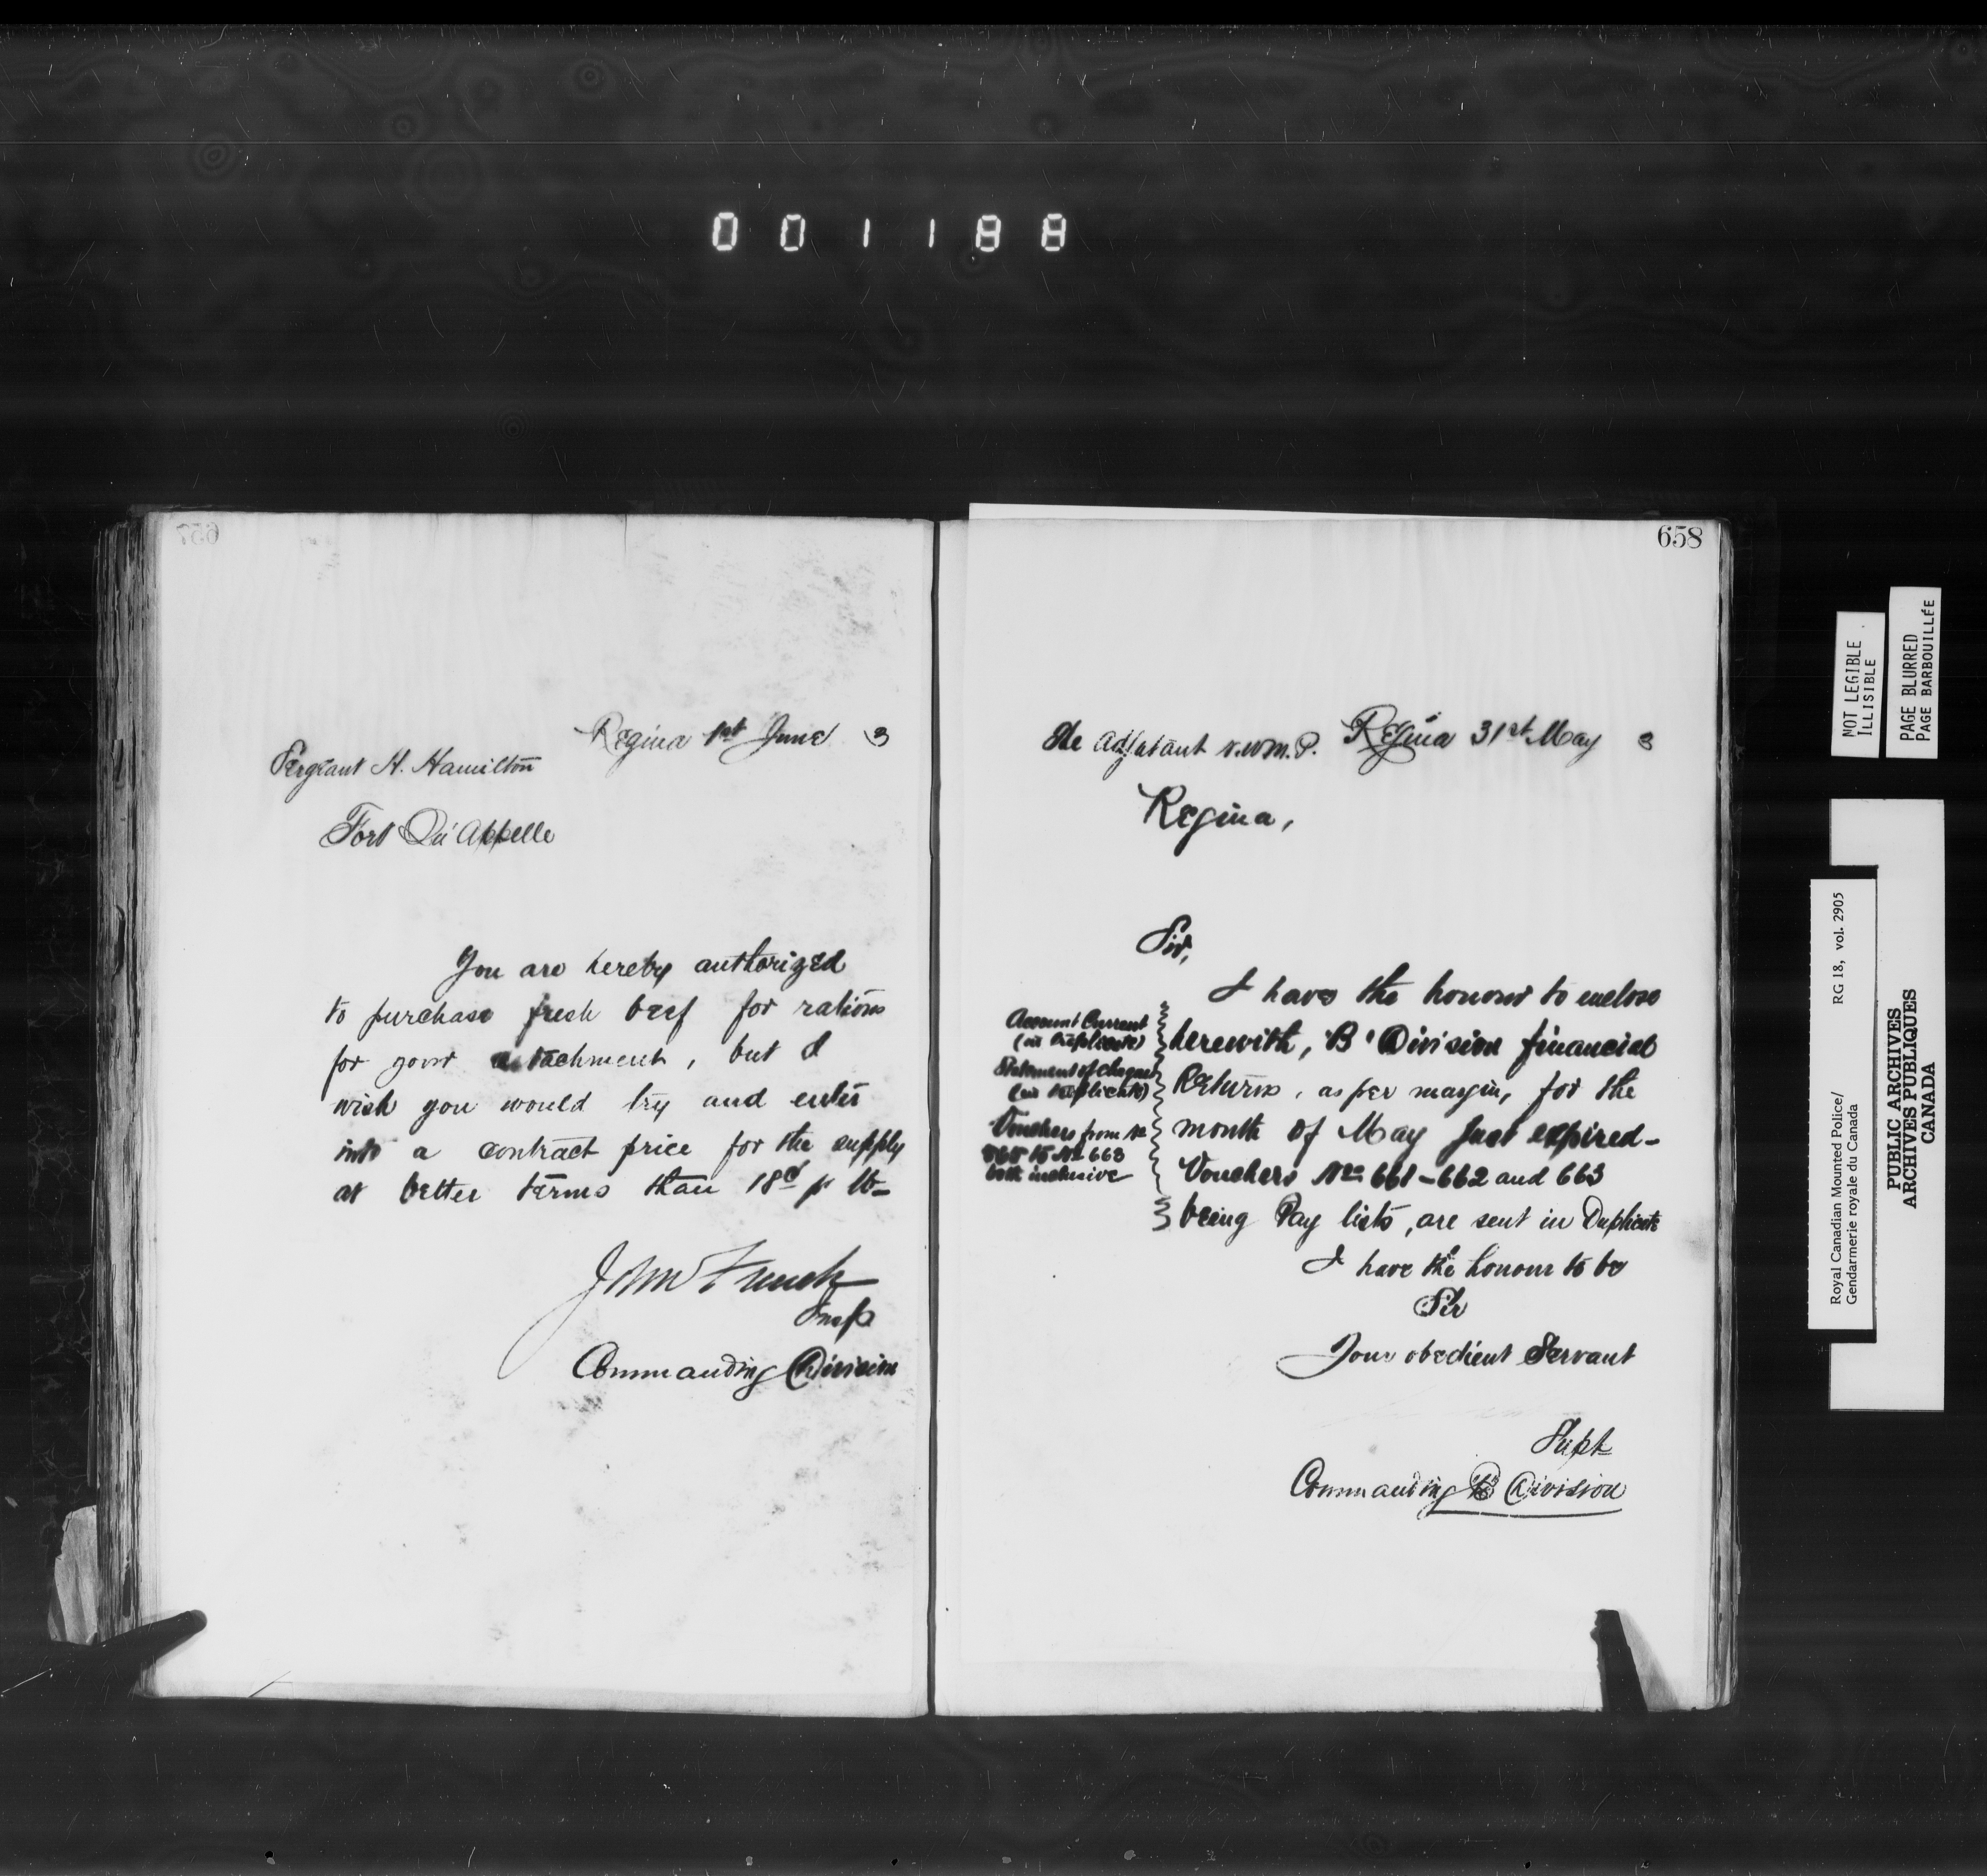 001188
657
Regina 1st June 3
Sergeant H. Hamilton
Fort Qu'Appelle
You are hereby authorized
to purchase fresh beef for rations
for your detachment, but I
wish you would try and enter
into a contract price for the supply
at better terms than 18c pr lb-
John French
Insp
Commanding Division
658
Regina 31st May 3
The Adjutant N.W.M.P.
Regina,
Sir,
I have the honour to enclose
herewith, 'B' Division financial
Returns, as per margin, for the
month of May just expired-
Vouchers Nos 661-662 and 663
being Pay lists, are sent in Duplicate
Account Current
(in triplicate)
Statement of cheques
(in triplicate)
Vouchers from No
to No 663
both inclusive
I have the honour to be
Sir
Your obedient Servant
Supt
Commanding B Division
NOT LEGIBLE
ILLISIBLE
PAGE BLURRED
PAGE BARBOUILLÉE
Royal Canadian Mounted Police/ RG 18, vol. 2905
Gendarmerie royale du Canada
PUBLIC ARCHIVES
ARCHIVES PUBLIQUES
CANADA